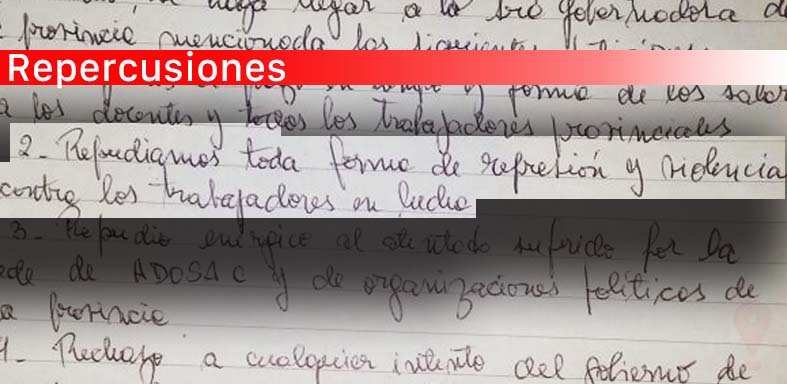 haga llegar a la sra gobernadora de
provincia mencionada los siguientes
Repercusiones
en tiempo y forma de los salar
a los docentes y todos los trabajadores provinciales
2- Repudiamos toda forma de represión y violencia
contra los trabajadores en lucha
3- Repudio enérgico al atentado sufrido por la
ede de ADOSAC y de organizaciones políticas de
a provincia
4- Rechazo a cualquier intento del gobierno de